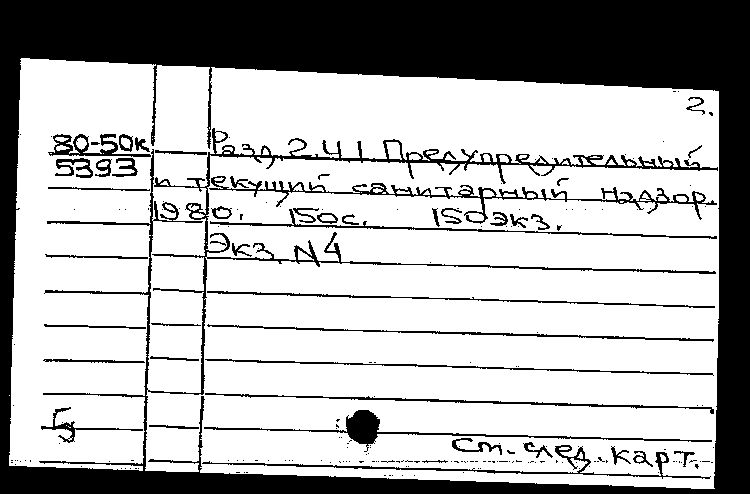 2.
80-50к Разд. 2.4.1 Предупредительный
5393
и текущий санитарный надзор.
1980. 150с. 150экз.
Экз. N4
5
См. след. карт.